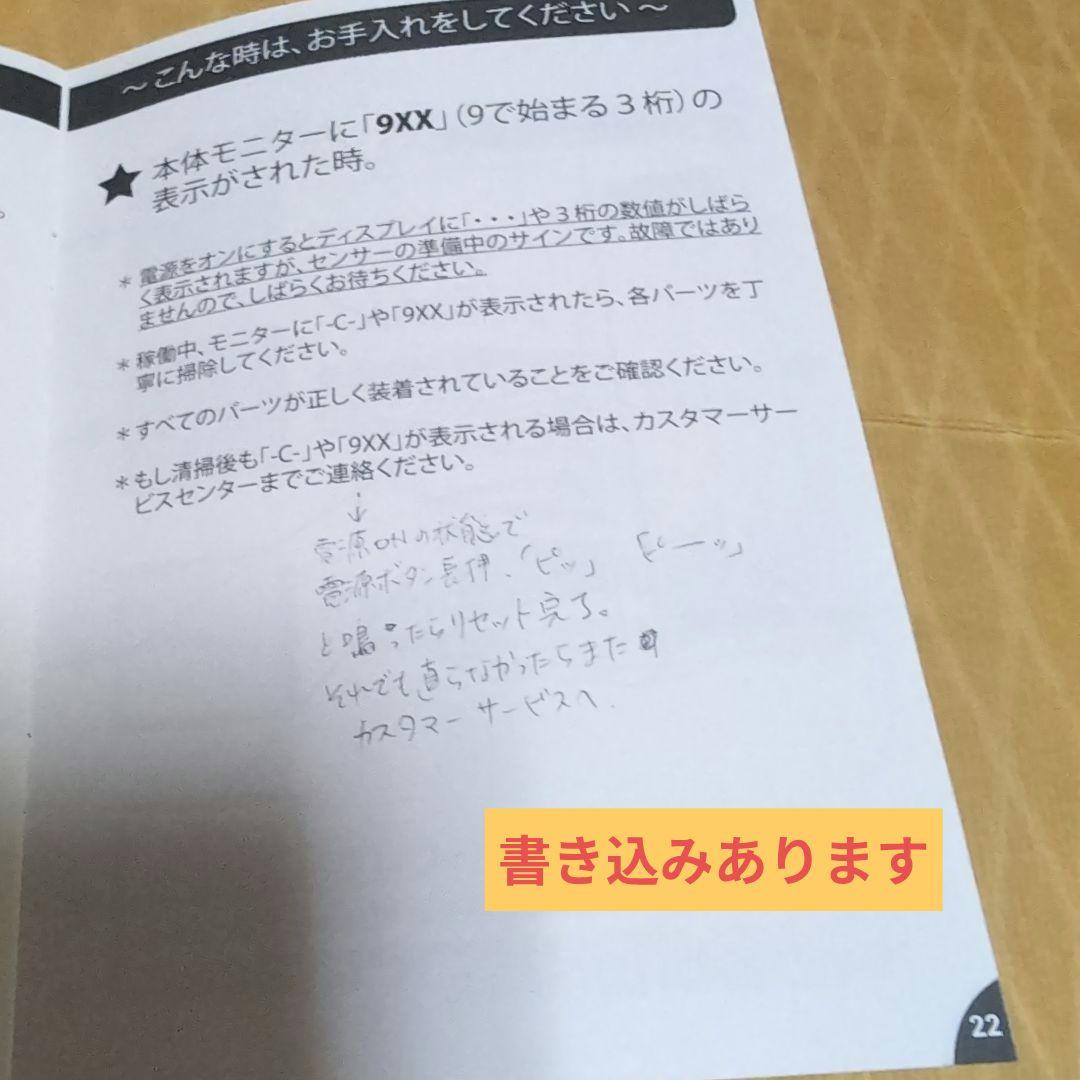 ～こんな時は、お手入れをしてください～
★ 本体モニターに「9XX」（9で始まる3桁）の
表示がされた時。
＊電源をオンにするとディスプレイに「・・・」や3桁の数値がしばら
く表示されますが、センサーの準備中のサインです。故障ではあり
ませんので、しばらくお待ちください。
＊稼働中、モニターに「-C-」や「9XX」が表示されたら、各パーツを丁
寧に掃除してください。
＊すべてのパーツが正しく装着されていることをご確認ください。
＊もし清掃後も「-C-」や「9XX」が表示される場合は、カスタマーサー
ビスセンターまでご連絡ください。
↓
電源ONの状態で
電源ボタン長押、「ピッ」「ピーッ」
と鳴ったらリセット完了。
それでも直らなかったらまた
カスタマーサービスへ.
書き込みあります
22